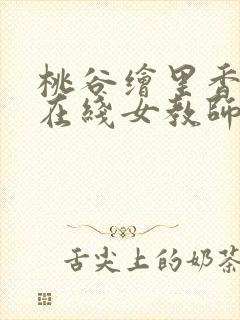 桃谷繪里香
在綫女教師
舌尖上的奶茶